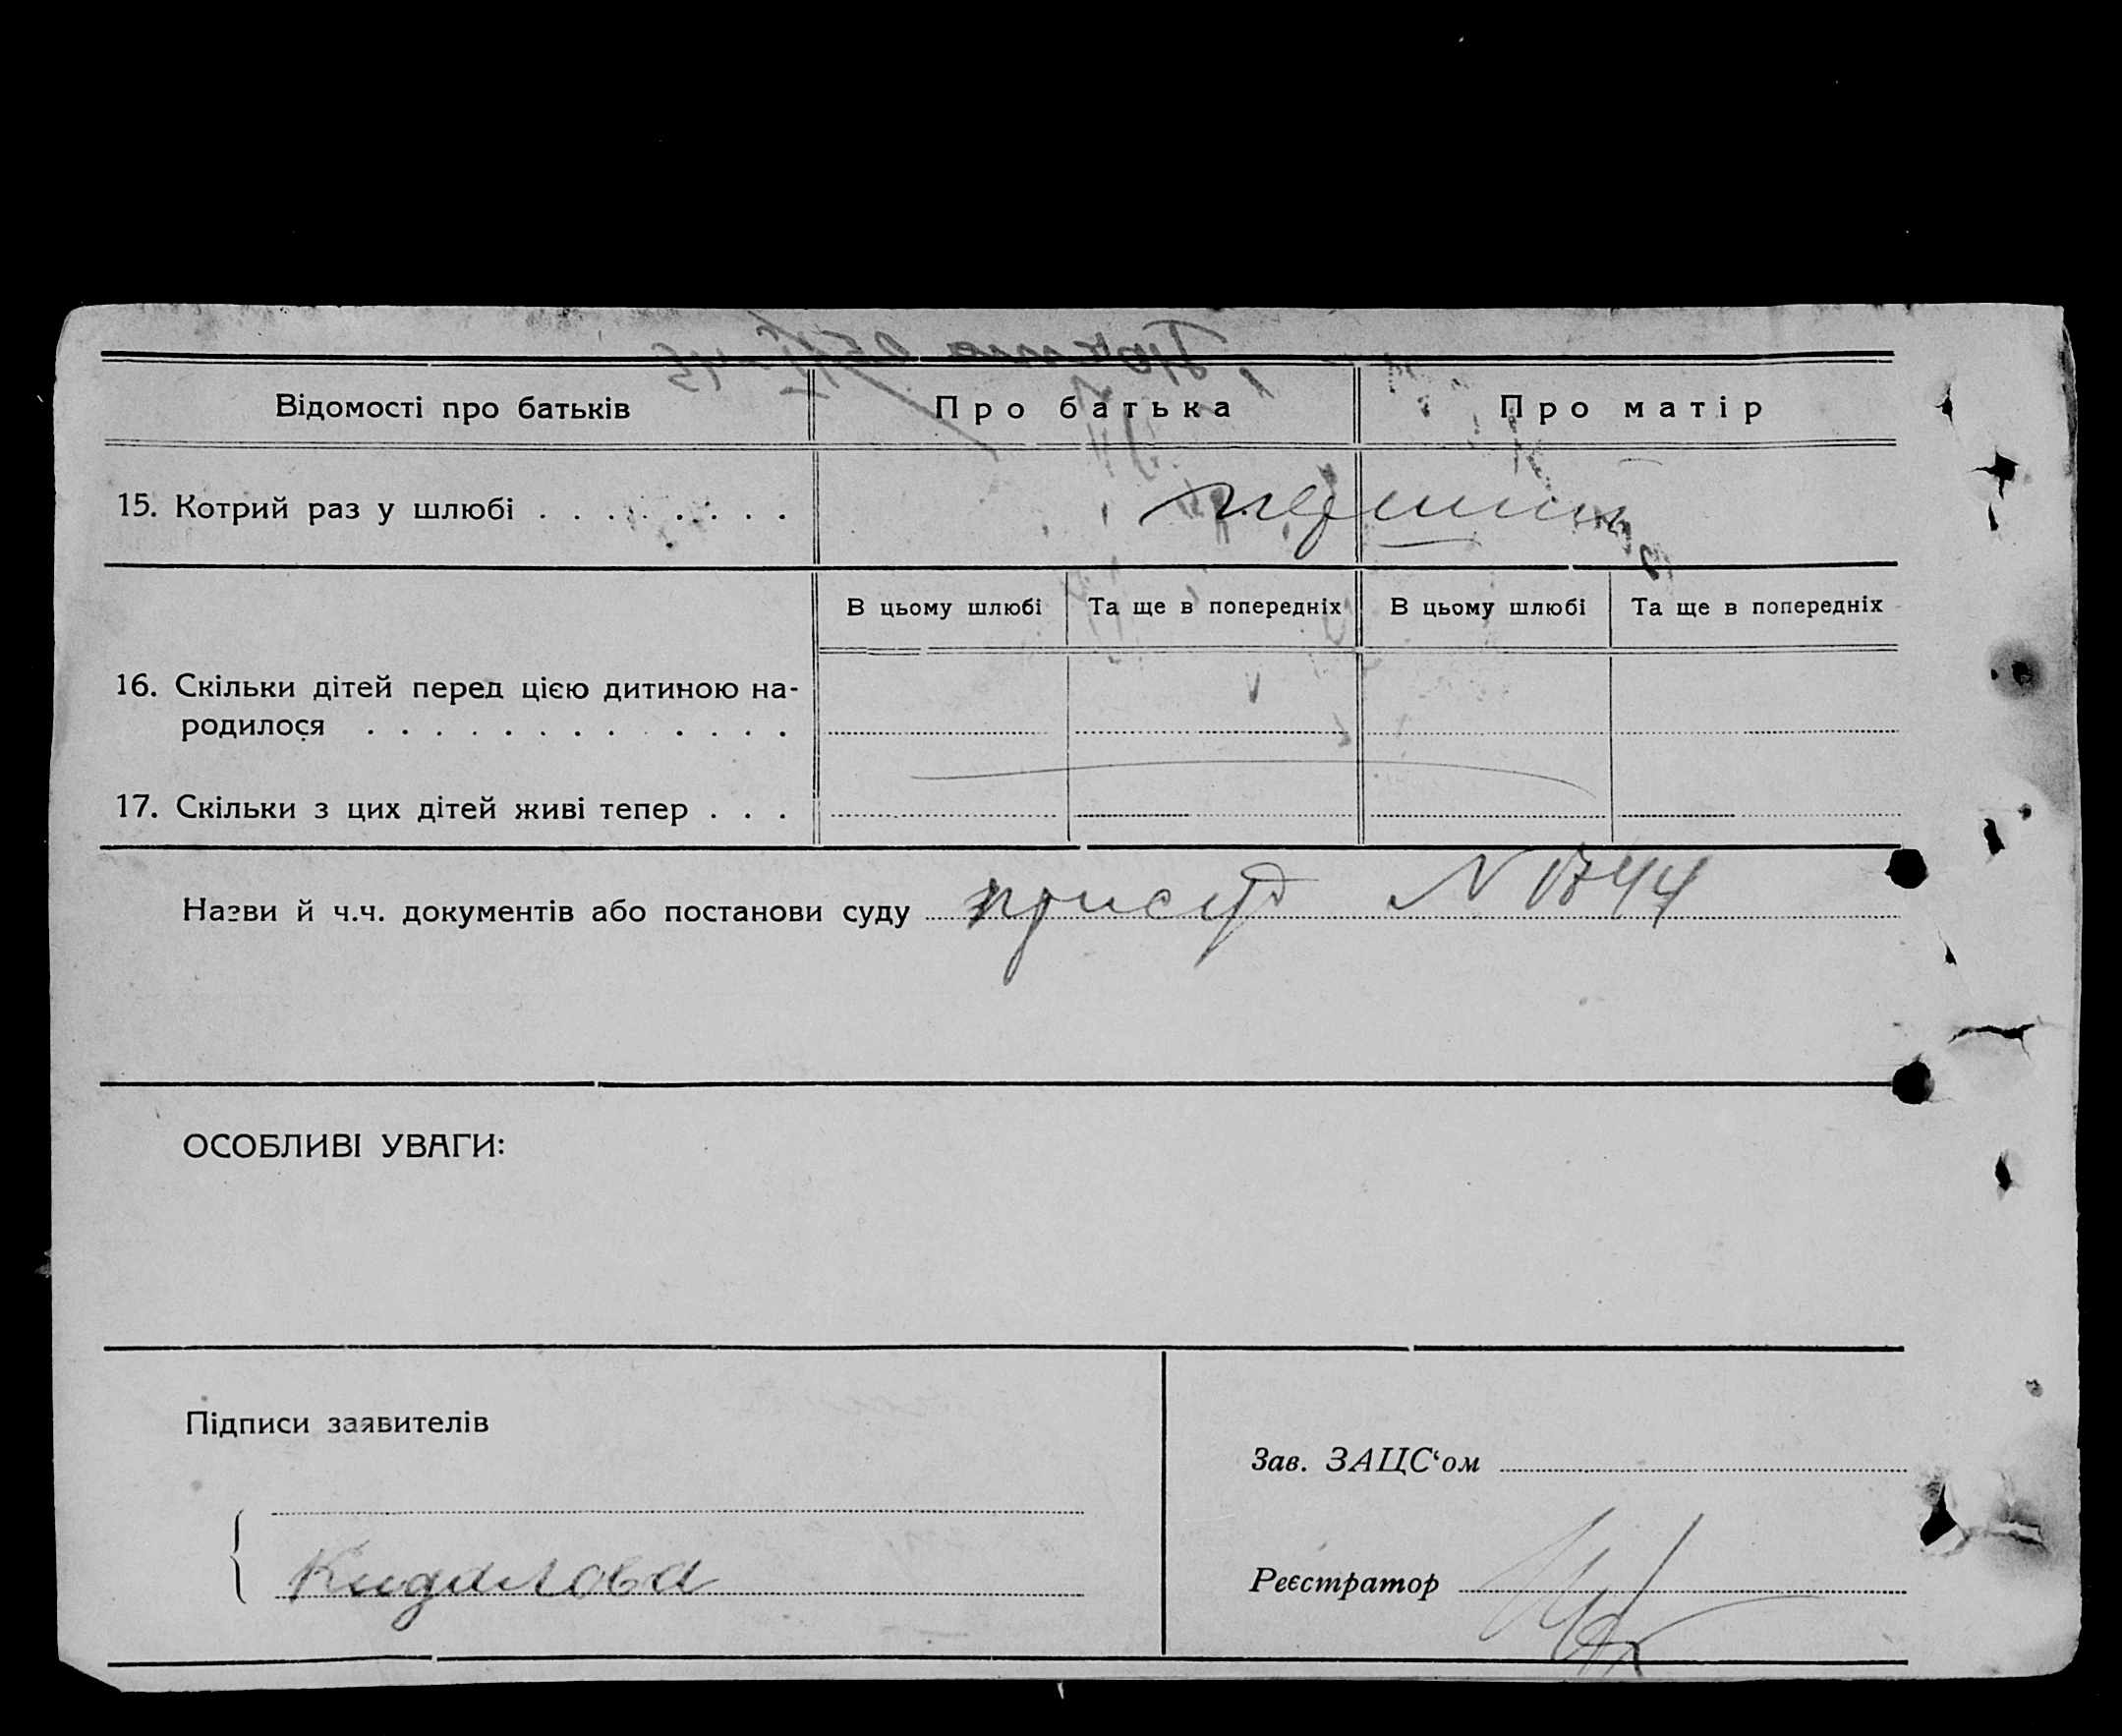 Відомості про батьків
Про батька
Про матір
15. Котрий раз у шлюбі . . . . . . . .
перший
В цьому шлюбі
Та ще в попередніх
В цьому шлюбі
Та ще в попередніх
16. Скільки дітей перед цією дитиною на-
родилося . . . . . . . . . . . . .
17. Скільки з цих дітей живі тепер . . .
Назви й ч.ч. документів або постанови суду присуд N 1744
ОСОБЛИВІ УВАГИ:
Підписи заявителів
Кидалова
Зав. ЗАЦС‘ом
Реєстратор